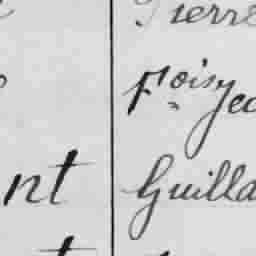 Pierre
F.ois Jea
nt Guilla